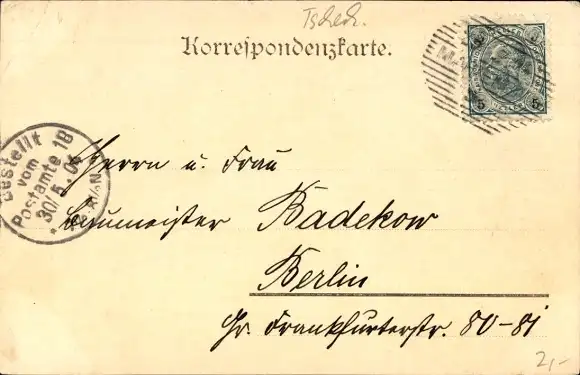 Tschech.
Korrespondenzkarte.
5 5
Bestellt
vom
Postamte 1B
30/5 04
Herrn u. Frau
Baumeister Badekow
Berlin
Gr. Frankfurterstr. 80-81
2,-